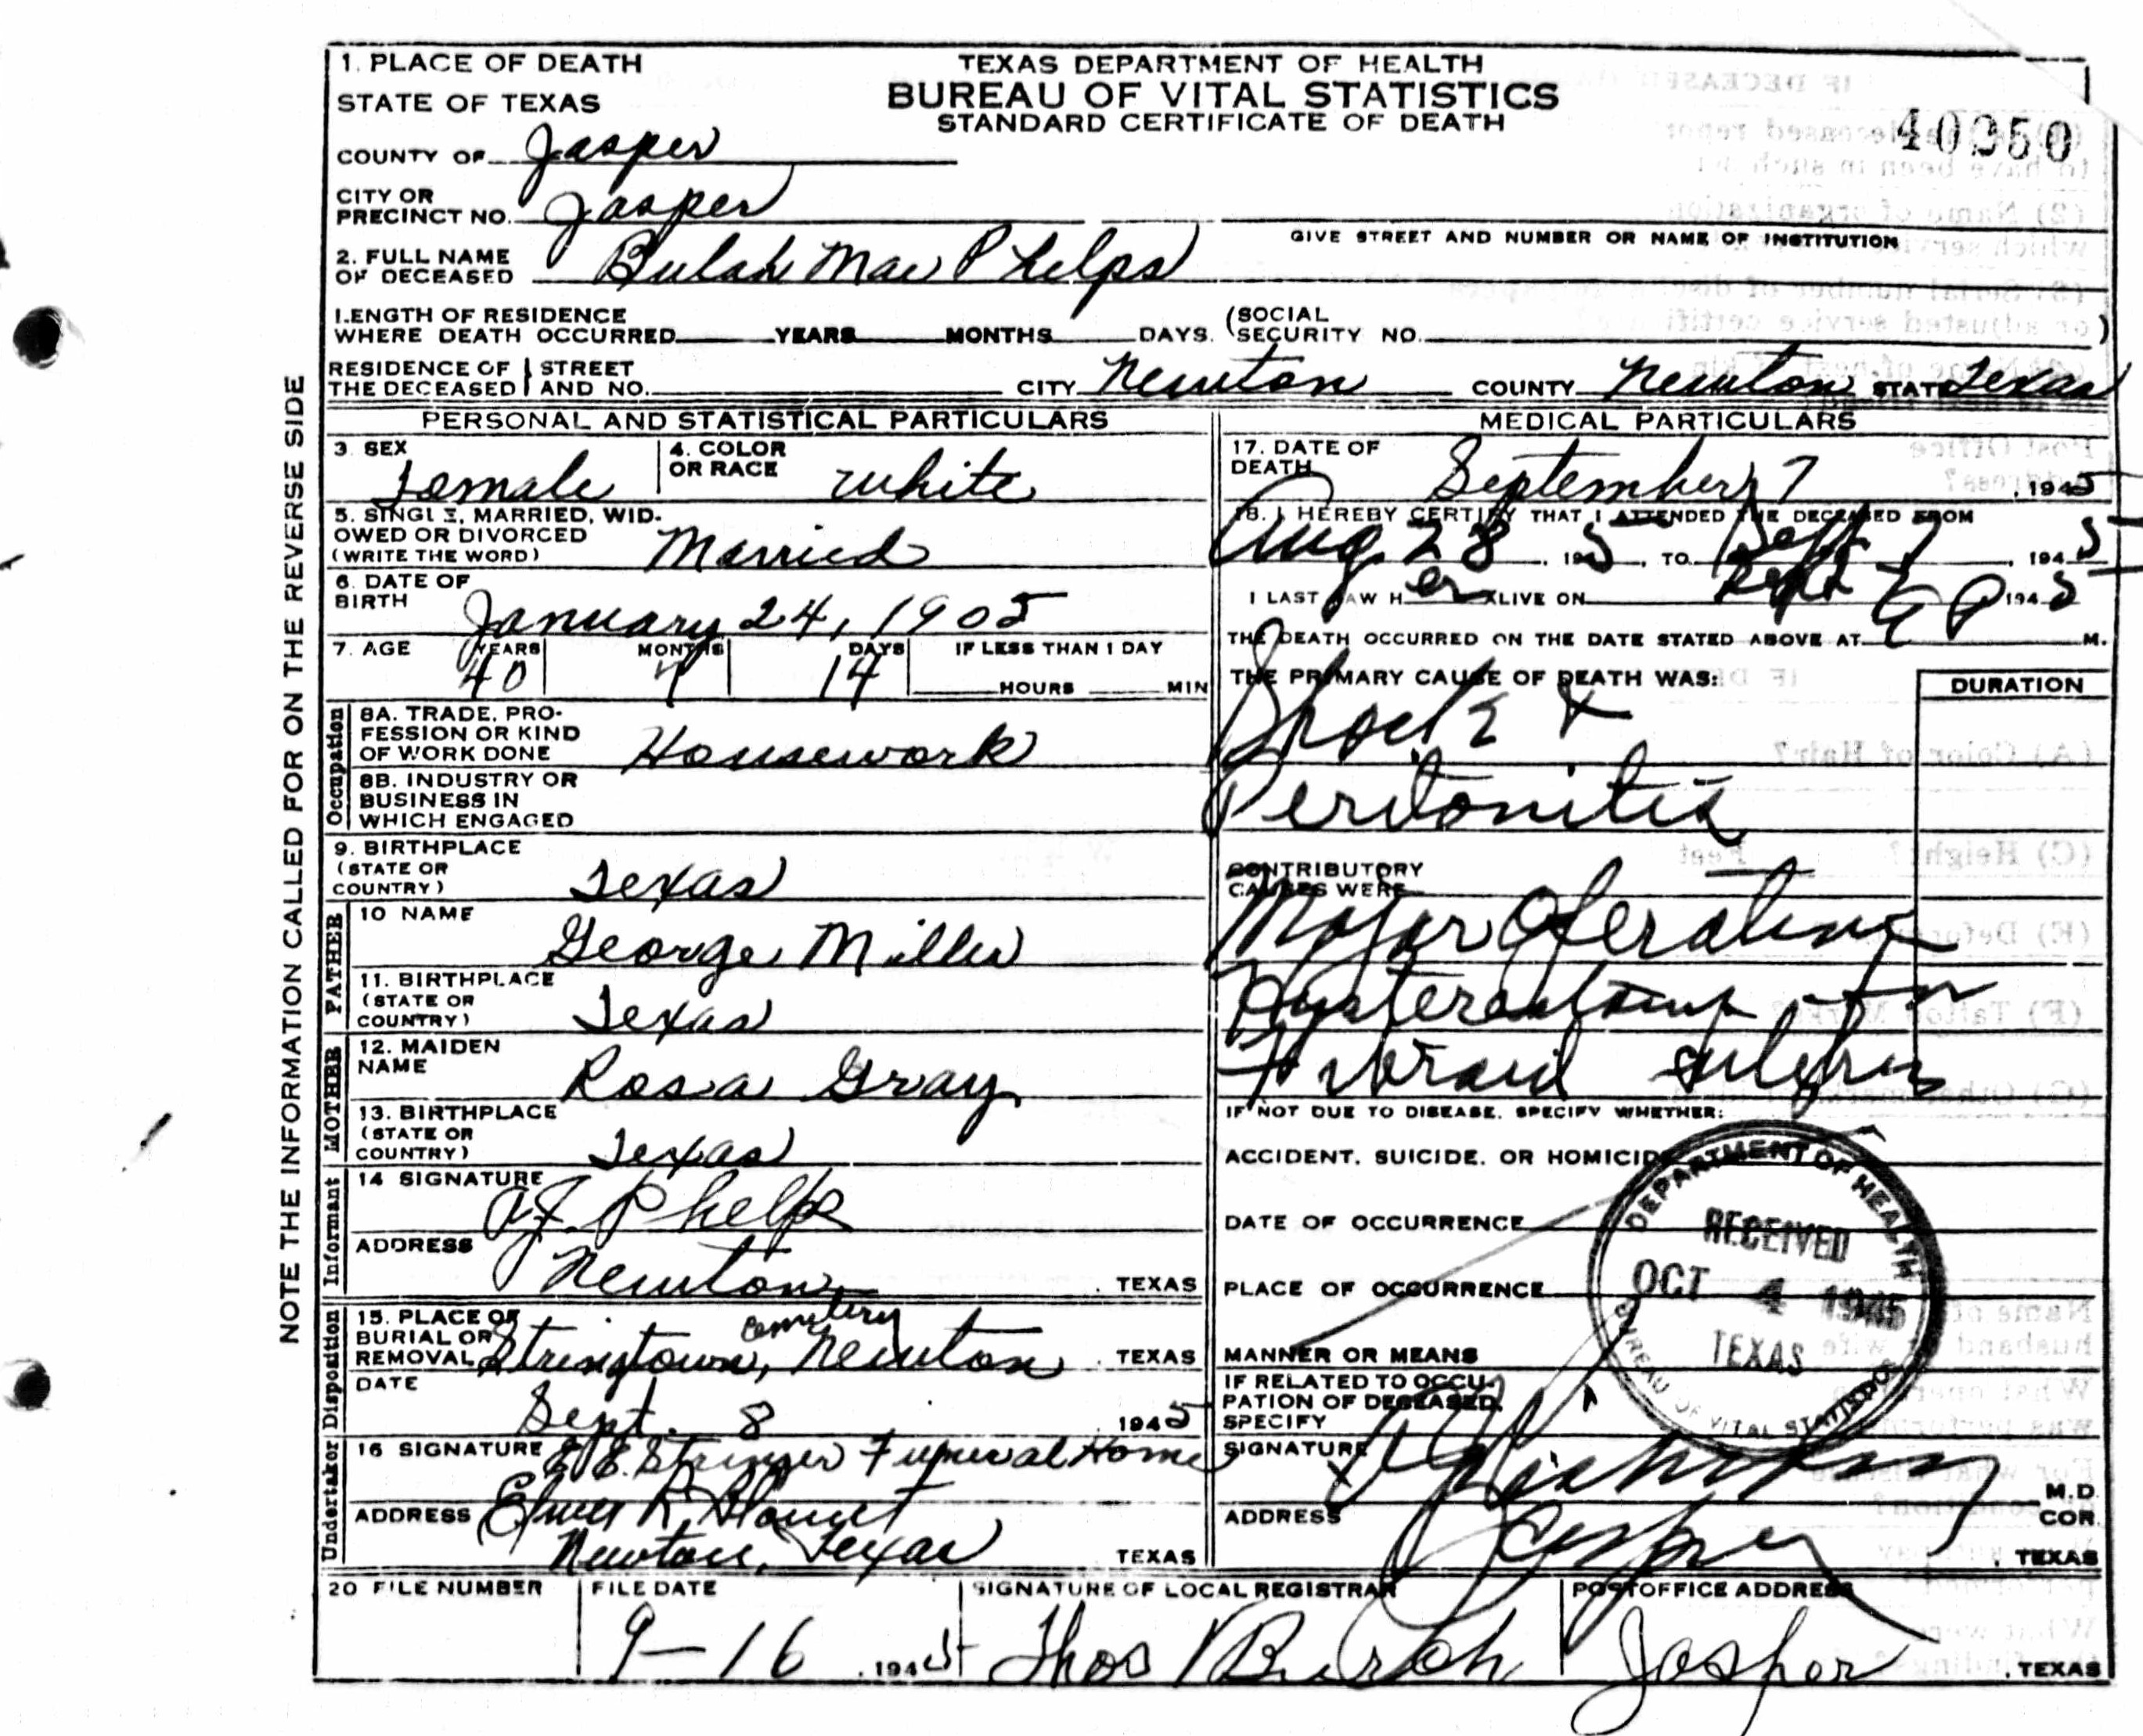 1. PLACE OF DEATH
STATE OF TEXAS
TEXAS DEPARTMENT OF HEALTH
BUREAU OF VITAL STATISTICS
STANDARD CERTIFICATE OF DEATH
COUNTY OF Jasper
CITY OR
PRECINCT NO. Jasper
GIVE STREET AND NUMBER OR NAME OF INSTITUTION
2. FULL NAME
OF DECEASED Bulah Mae Phelps
LENGTH OF RESIDENCE
WHERE DEATH OCCURRED YEARS MONTHS DAYS. (SOCIAL
SECURITY NO. )
RESIDENCE OF THE DECEASED STREET AND NO. CITY Newton COUNTY Newton STATE Texas
NOTE THE INFORMATION CALLED FOR ON THE REVERSE SIDE
PERSONAL AND STATISTICAL PARTICULARS
3. SEX Female
4. COLOR
OR RACE white
5. SINGLE, MARRIED, WID-
OWED OR DIVORCED
(WRITE THE WORD) Married
6. DATE OF
BIRTH January 24, 1905
7. AGE YEARS MONTHS DAYS IF LESS THAN 1 DAY
40 7 14 HOURS MIN
Occupation
8A. TRADE, PRO-
FESSION OR KIND
OF WORK DONE Housework
8B. INDUSTRY OR
BUSINESS IN
WHICH ENGAGED
9. BIRTHPLACE
(STATE OR
COUNTRY) Texas
FATHER
10 NAME George Miller
11. BIRTHPLACE
(STATE OR
COUNTRY) Texas
MOTHER
12. MAIDEN
NAME Rosa Gray
13. BIRTHPLACE
(STATE OR
COUNTRY) Texas
Informant
14 SIGNATURE Phelps
ADDRESS Newton, TEXAS
Undertaker Disposition
15. PLACE OF
BURIAL OR
REMOVAL Stringtown cemetery, Newton, TEXAS
DATE Sept. 8 1945
16 SIGNATURE E. E. Stringer Funeral Home
ADDRESS
Newton, Texas TEXAS
MEDICAL PARTICULARS
17. DATE OF
DEATH September 7, 1945
18. I HEREBY CERTIFY THAT I ATTENDED THE DECEASED FROM
Aug. 28, 195, TO Sept 7, 1945
I LAST SAW HER ALIVE ON Sept 1945
THE DEATH OCCURRED ON THE DATE STATED ABOVE AT P M.
THE PRIMARY CAUSE OF DEATH WAS: DURATION
Shock &
Peritonitis
CONTRIBUTORY
CAUSES WERE
Major Operation
Hysterectomy for
Fibroid
IF NOT DUE TO DISEASE, SPECIFY WHETHER:
ACCIDENT, SUICIDE, OR HOMICIDE
DATE OF OCCURRENCE
PLACE OF OCCURRENCE
MANNER OR MEANS
IF RELATED TO OCCU-
PATION OF DECEASED,
SPECIFY
DEPARTMENT OF HEALTH
RECEIVED
OCT 4 1945
TEXAS
BUREAU OF VITAL STATISTICS
SIGNATURE M.D.
COR.
ADDRESS Jasper, TEXAS
20 FILE NUMBER
FILE DATE 9-16, 1945
SIGNATURE OF LOCAL REGISTRAR Thos Burch
POSTOFFICE ADDRESS Jasper, TEXAS